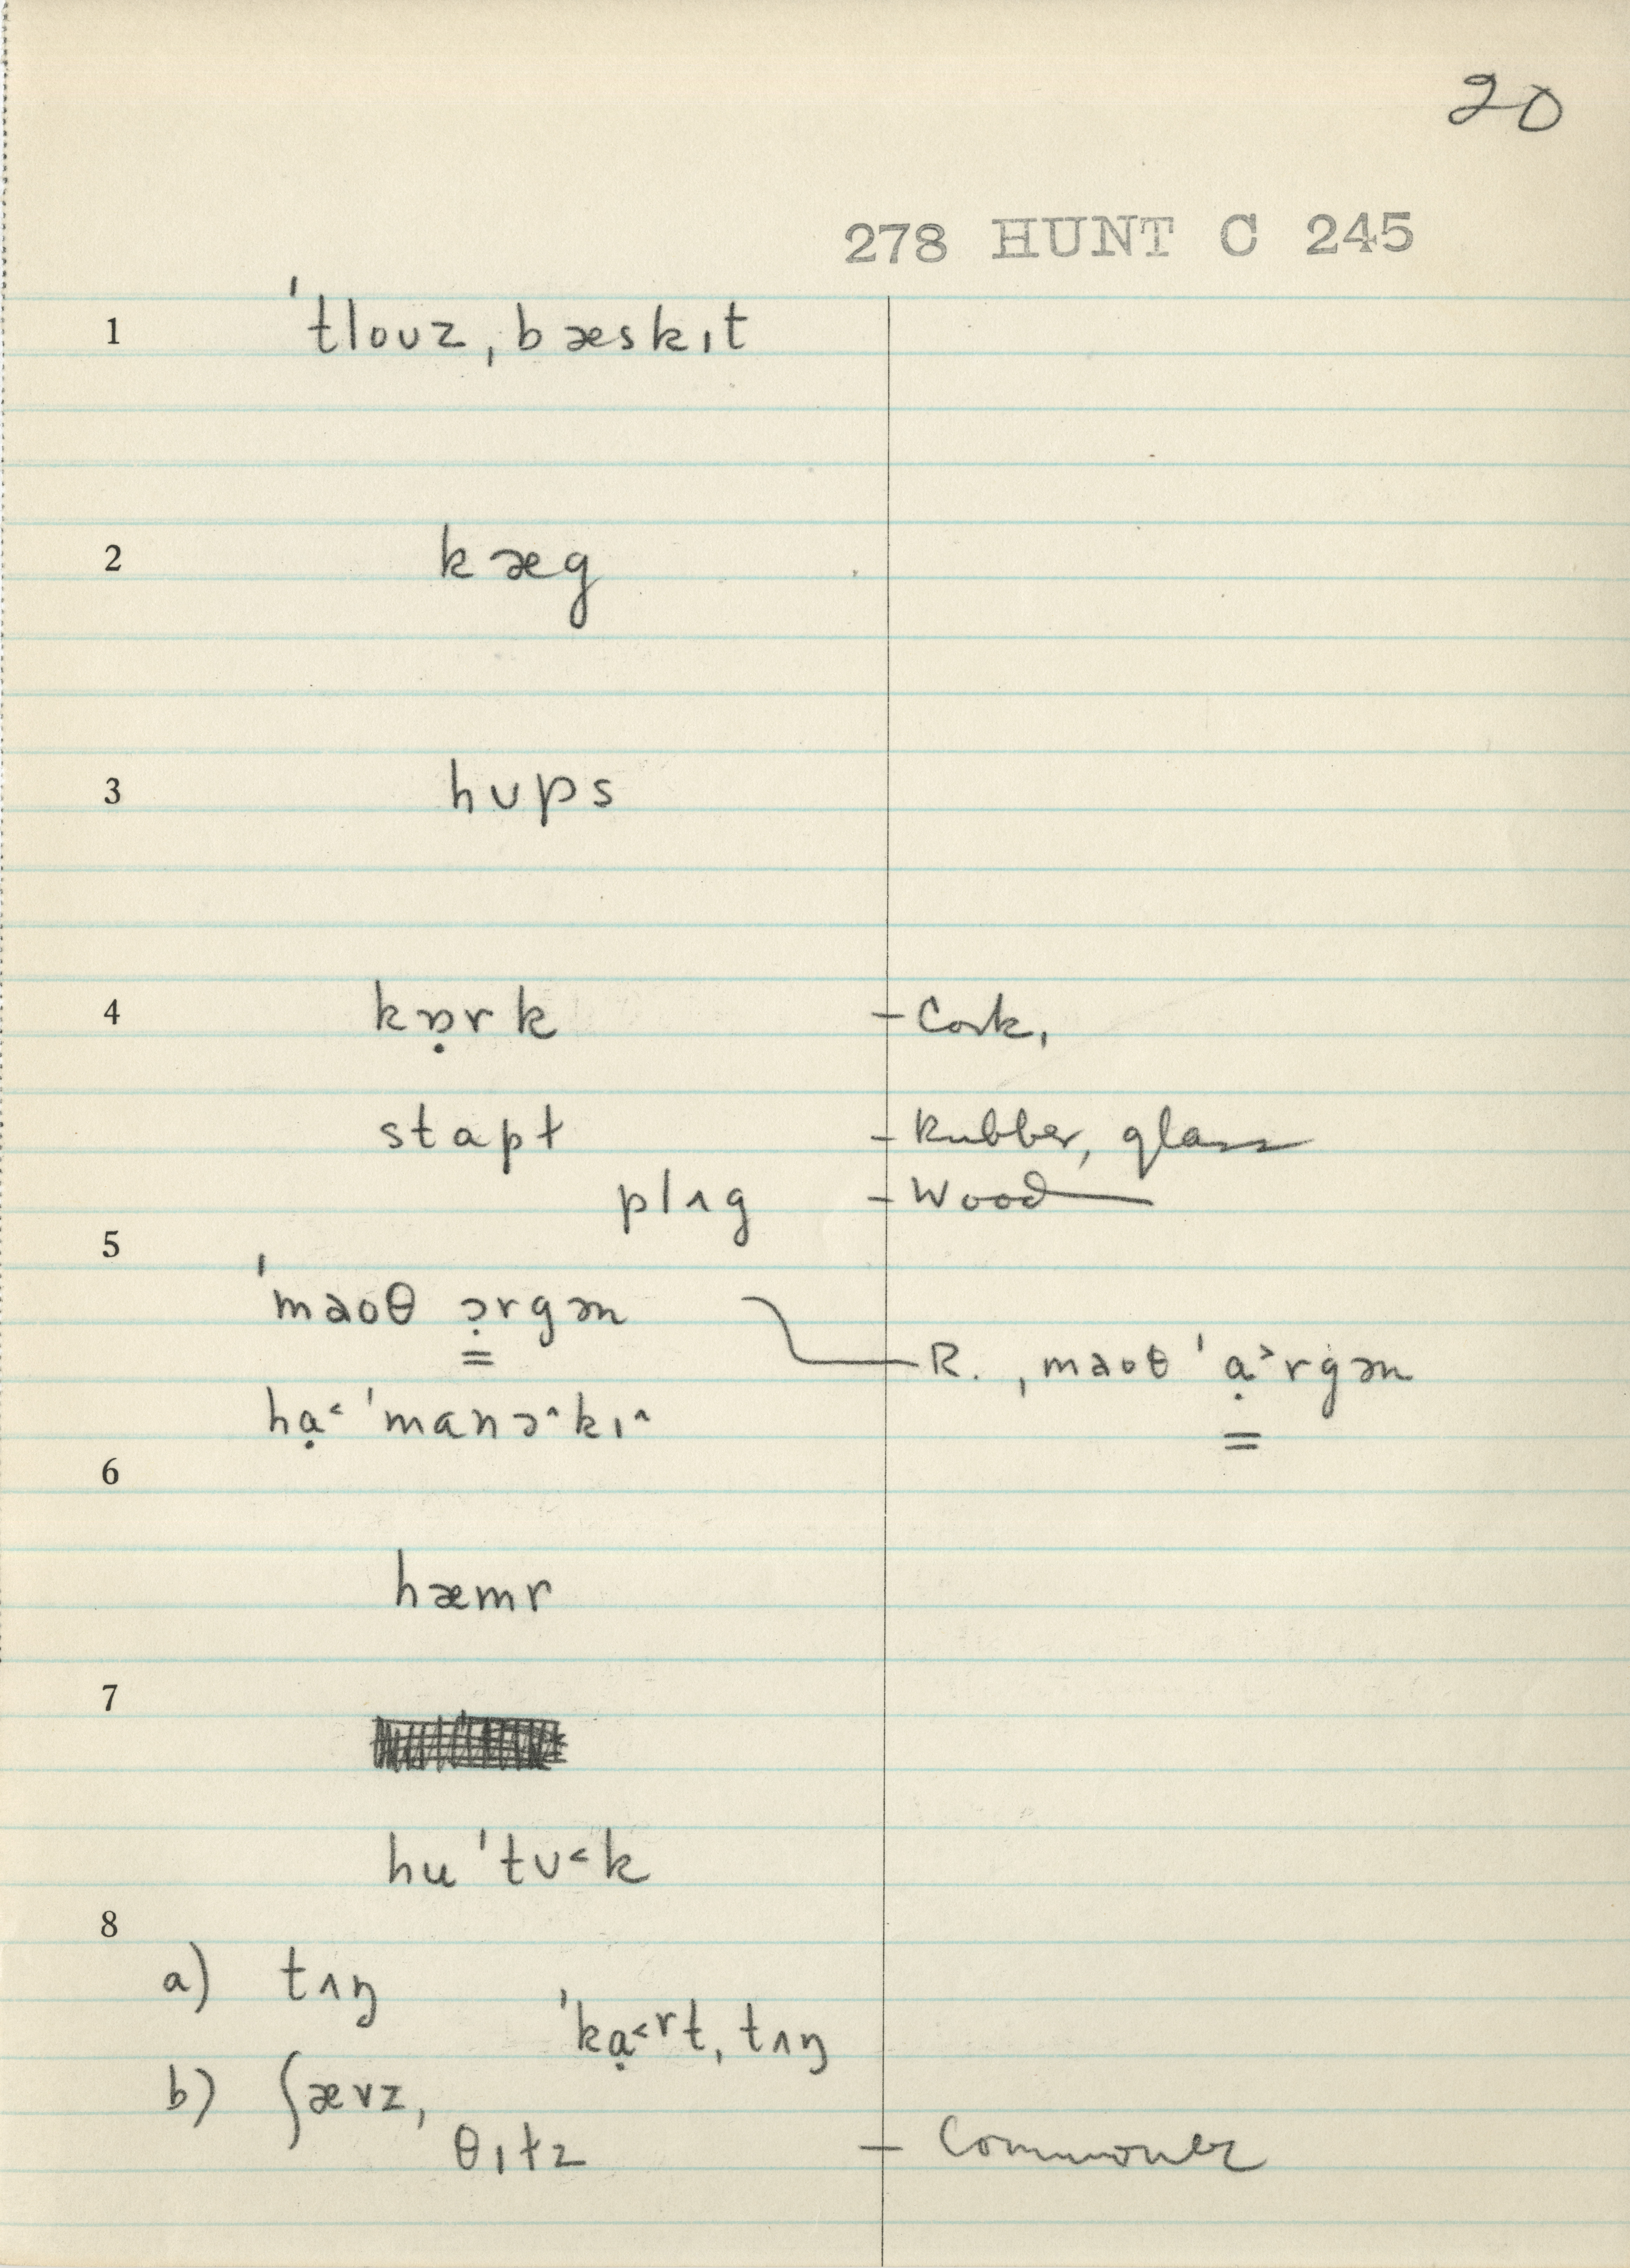 20
278 HUNT C 245
1 ˈtloʊz ˌbæskɪt
2 kæg
3 hups
4 kɒ̣rk - Cork,
stapɫ - Rubber, glass
plʌg - Wood
5
ˈmaoθ ɔ̣rgən
R. ˌmaoθ ˈɑ̣˃rgən
hɑ̣˂ ˈmanɔ˄kɪ˄
6
hæmr
7
hu ˈtʊ˂k
8
a) tʌŋ
ˈkɑ̣˂rt ˌtʌŋ
b) ʃævz,
θɪɫz - Commoner